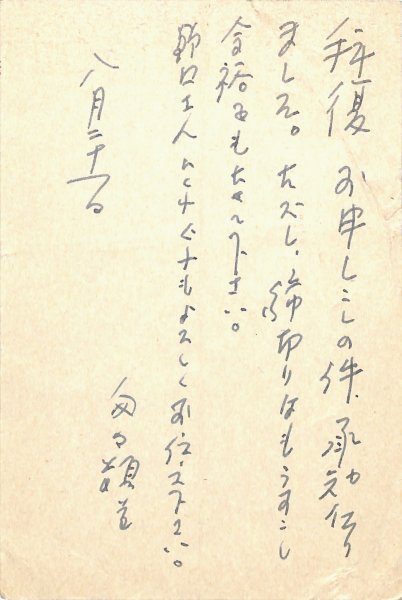 拝復 お申しこしの件、承知仕り
ました。ただし、締切りはもうすこし
余裕をもたせて下さい。
さんにくれぐれもよろしくお伝え下さい。
八月二十一日